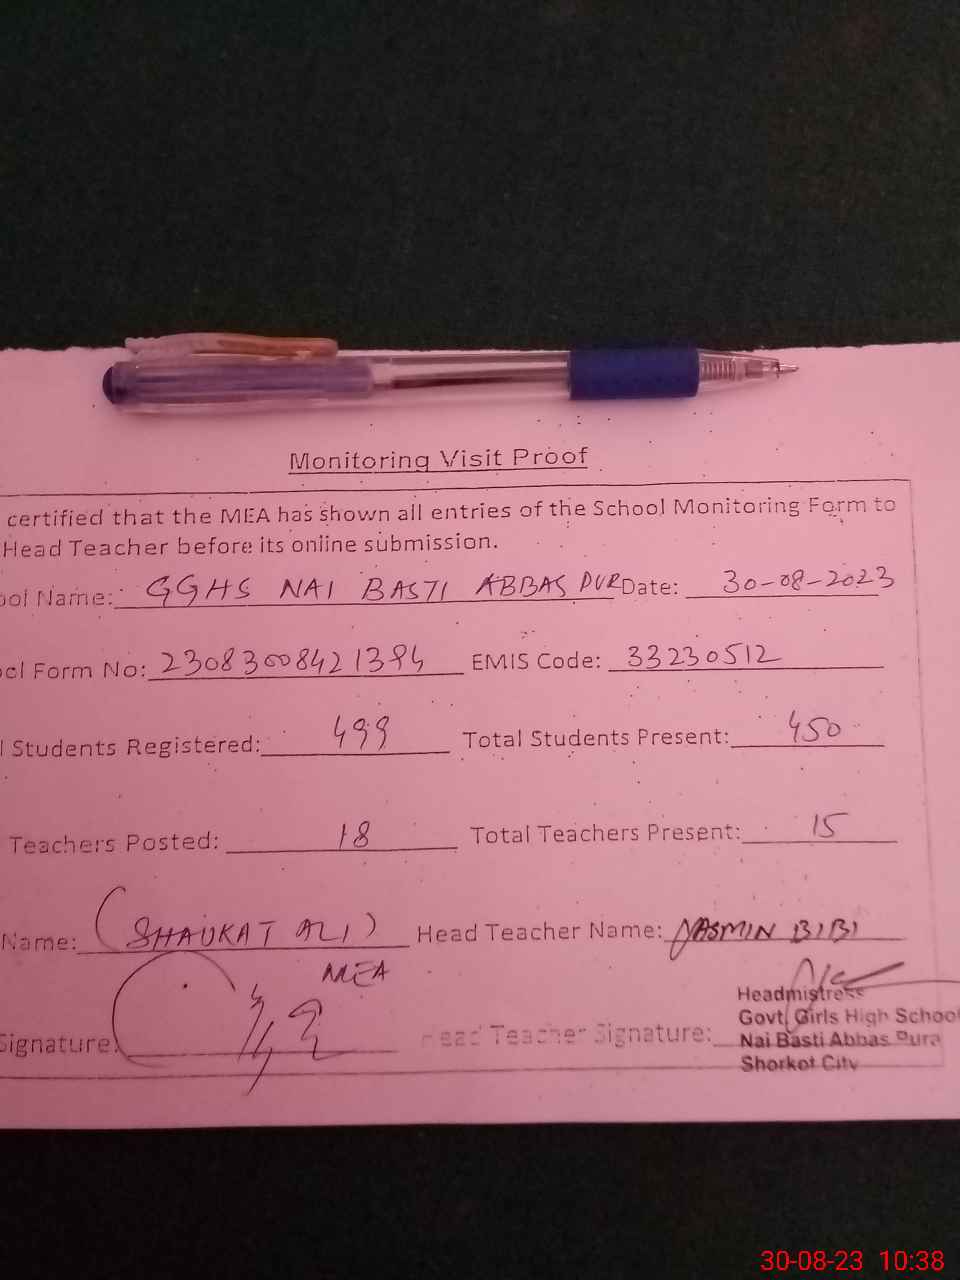 Monitoring Visit Proof
certified that the MEA has shown all entries of the School Monitoring Form to
Head Teacher before its online submission.
ool Name: GGHS NAI BASTI ABBAS PUR Date: 30-08-2023
ol Form No: 23083008421394 EMIS Code: 33230512
l Students Registered: 499 Total Students Present: 450
Teachers Posted: 18 Total Teachers Present: 15
Name: (SHAUKAT ALI) Head Teacher Name: YASMIN BIBI
MEA
Signature: Head Teacher Signature:
Headmistress
Govt. Girls High School
Nai Basti Abbas Pura
Shorkot City
30-08-23 10:38